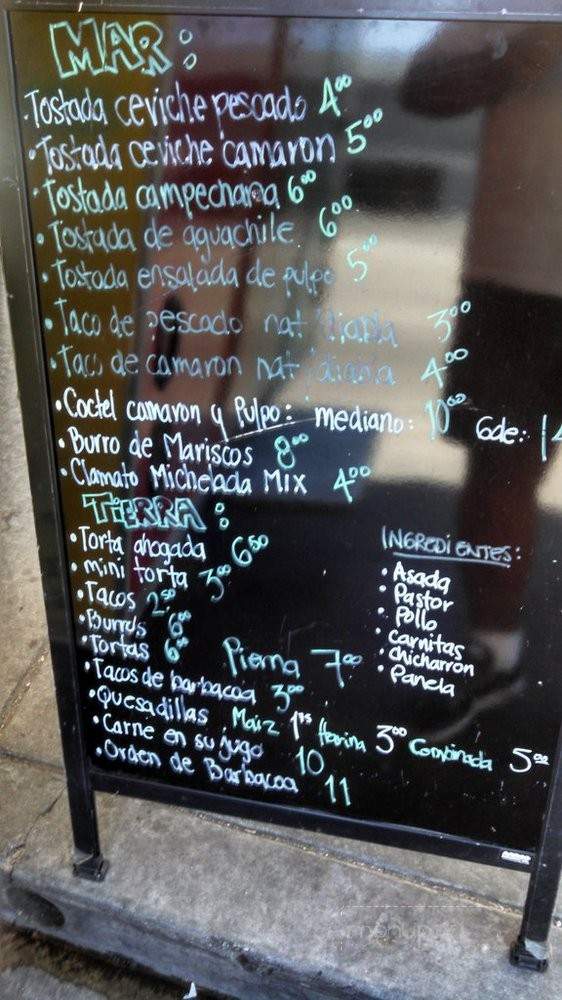 MAR:
• Tostada ceviche pescado 4⁰⁰
• Tostada ceviche camaron 5⁰⁰
• Tostada campechana 6⁰⁰
• Tostada de aguachile 6⁰⁰
• Tostada ensalada de pulpo 5⁰⁰
• Taco de pescado nat/diabla 3⁰⁰
• Taco de camaron nat/diabla 4⁰⁰
• Coctel camaron y Pulpo: mediano: 10⁰⁰ Gde: 14
• Burro de Mariscos 8⁰⁰
• Clamato Michelada Mix 4⁰⁰
TIERRA:
• Torta ahogada 6⁵⁰
• mini torta 3⁰⁰
• Tacos 2⁵⁰
• Burros 6⁰⁰
• Tortas 6⁰⁰ Pierna 7⁰⁰
• Tacos de barbacoa 3⁰⁰
• Quesadillas Maiz 1⁷⁵ Harina 3⁰⁰ Combinada 5⁰⁰
• Carne en su jugo 10
• Orden de Barbacoa 11
INGREDIENTES:
• Asada
• Pastor
• Pollo
• Carnitas
• chicharron
• Panela